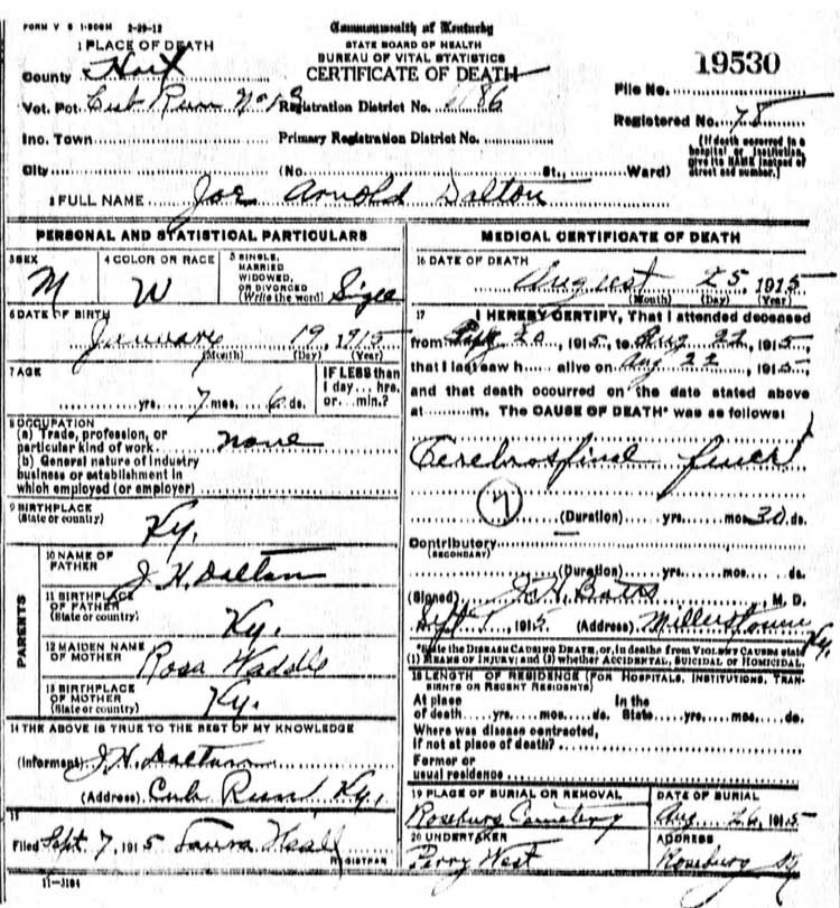 FORM V S 1-50M 2-29-12
Commonwealth of Kentucky
STATE BOARD OF HEALTH
BUREAU OF VITAL STATISTICS
CERTIFICATE OF DEATH
19530
1 PLACE OF DEATH
County Hart
Vot. Pct. Cub Run No 12 Registration District No. 186
File No.
Registered No. 78
Inc. Town Primary Registration District No.
City (No. St., Ward)
(If death occurred in a hospital or institution, give its NAME instead of street and number.)
2 FULL NAME Joe Arnold Dalton
PERSONAL AND STATISTICAL PARTICULARS
3 SEX
M
4 COLOR OR RACE
W
5 SINGLE, MARRIED WIDOWED, OR DIVORCED (Write the word)
6 DATE OF BIRTH
January 19, 1915
(Month) (Day) (Year)
7 AGE
yrs. 7 mos. 6 ds.
IF LESS than 1 day... hrs. or... min.?
8 OCCUPATION
(a) Trade, profession, or
particular kind of work none
(b) General nature of industry
business or establishment in
which employed (or employer)
9 BIRTHPLACE
(State or country)
Ky.
PARENTS
10 NAME OF FATHER
J. H. Dalton
11 BIRTHPLACE OF FATHER (State or country)
Ky.
12 MAIDEN NAME OF MOTHER
Rosa Waddle
13 BIRTHPLACE OF MOTHER (State or country)
Ky.
14 THE ABOVE IS TRUE TO THE BEST OF MY KNOWLEDGE
(Informant) J. H. Dalton
(Address) Cub Run Ky.
15
Filed Sept. 7, 1915 Laura
REGISTRAR
11-3184
MEDICAL CERTIFICATE OF DEATH
16 DATE OF DEATH
August 25, 1915
(Month) (Day) (Year)
17 I HEREBY CERTIFY, That I attended deceased
from 20, 1915, to Aug 22, 1915,
that I last saw h alive on Aug 22, 1915,
and that death occurred on the date stated above
at m. The CAUSE OF DEATH* was as follows:
Cerebrospinal fever
(Duration) yrs. mos. 30 ds.
Contributory
(SECONDARY)
(Duration) yrs. mos. ds.
(Signed) J. H. Batts, M. D.
Sept 1, 1915 (Address) Millerstown Ky.
*State the DISEASE CAUSING DEATH, or, in deaths from VIOLENT CAUSES state
(1) MEANS OF INJURY; and (2) whether ACCIDENTAL, SUICIDAL or HOMICIDAL.
18 LENGTH OF RESIDENCE (FOR HOSPITALS, INSTITUTIONS, TRANSIENTS OR RECENT RESIDENTS)
At place of death yrs. mos. ds. In the State yrs. mos. ds.
Where was disease contracted,
if not at place of death?
Former or
usual residence
19 PLACE OF BURIAL OR REMOVAL
Roseburg Cemetery
DATE OF BURIAL
Aug. 26, 1915
20 UNDERTAKER
Perry West
ADDRESS
Roseburg Ky